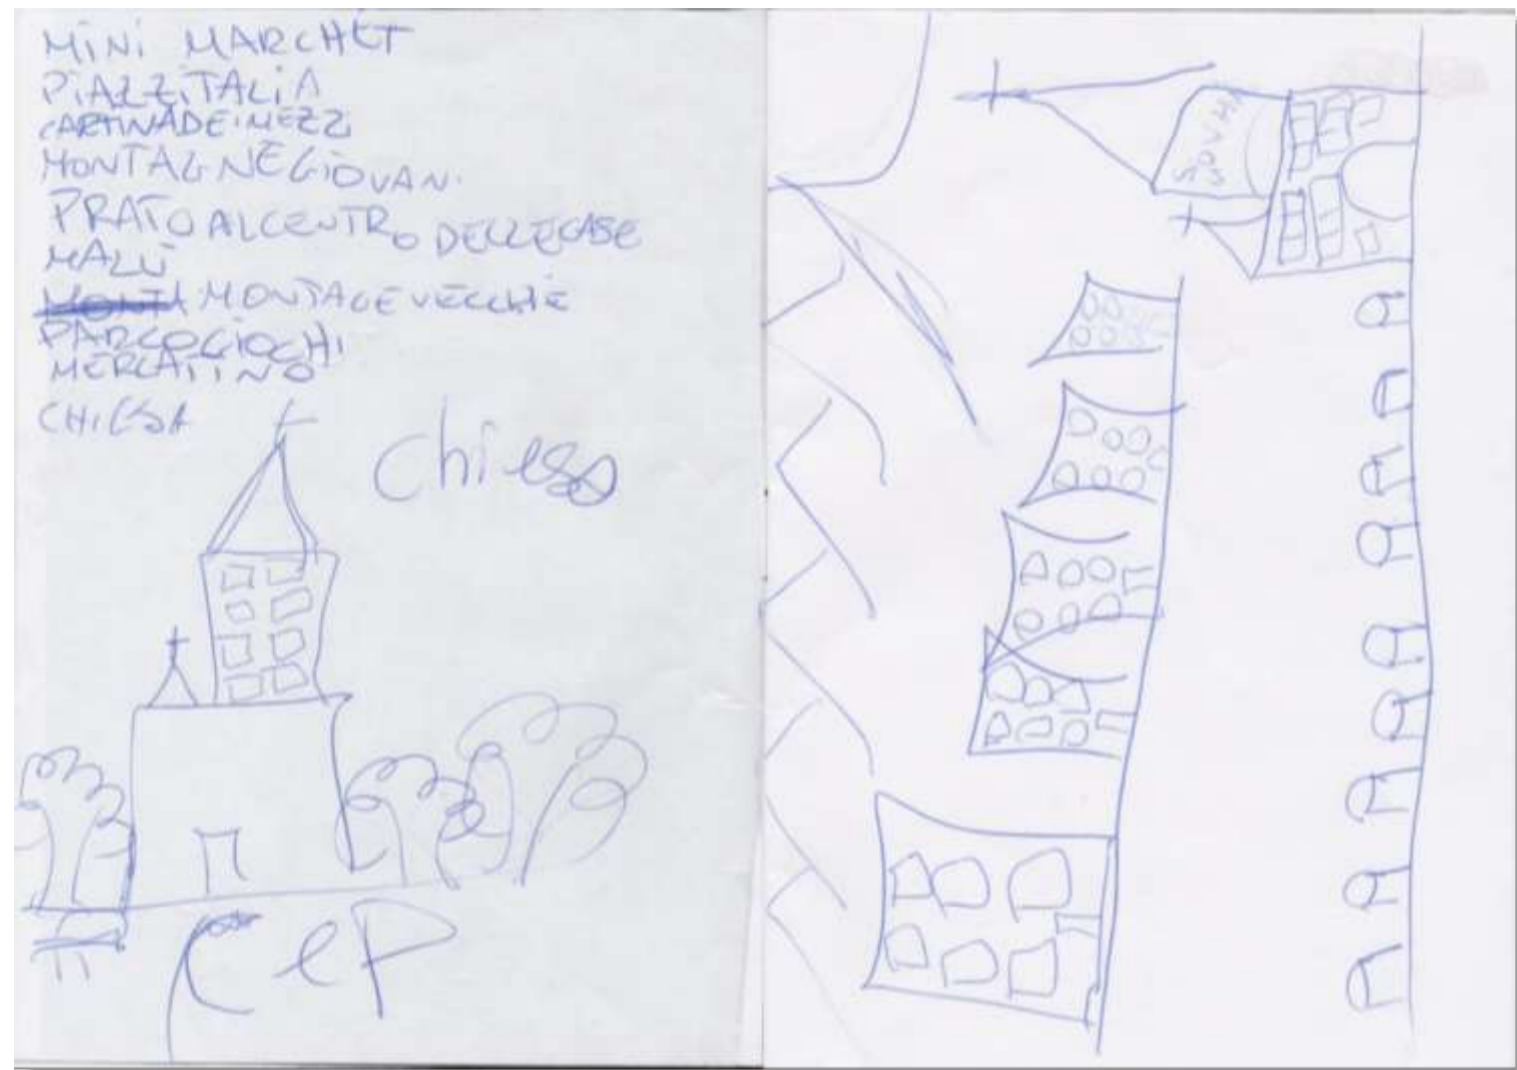 MINI MARCHET
PIAZZITALIA
CARTINADEIMEZZI
MONTAGNEGIOVANI
PRATO AL CENTRO DELLECASE
MALÙ
MONTAGEVECCHIE
PARCOGIOCHI
MERCATINO
CHIESA
Chiesa
CeP